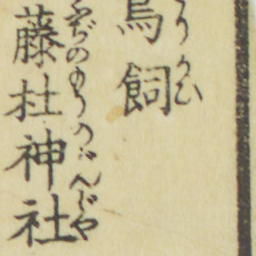 鳥飼
りかひ
藤杜神社
ふぢのもりのじんじや